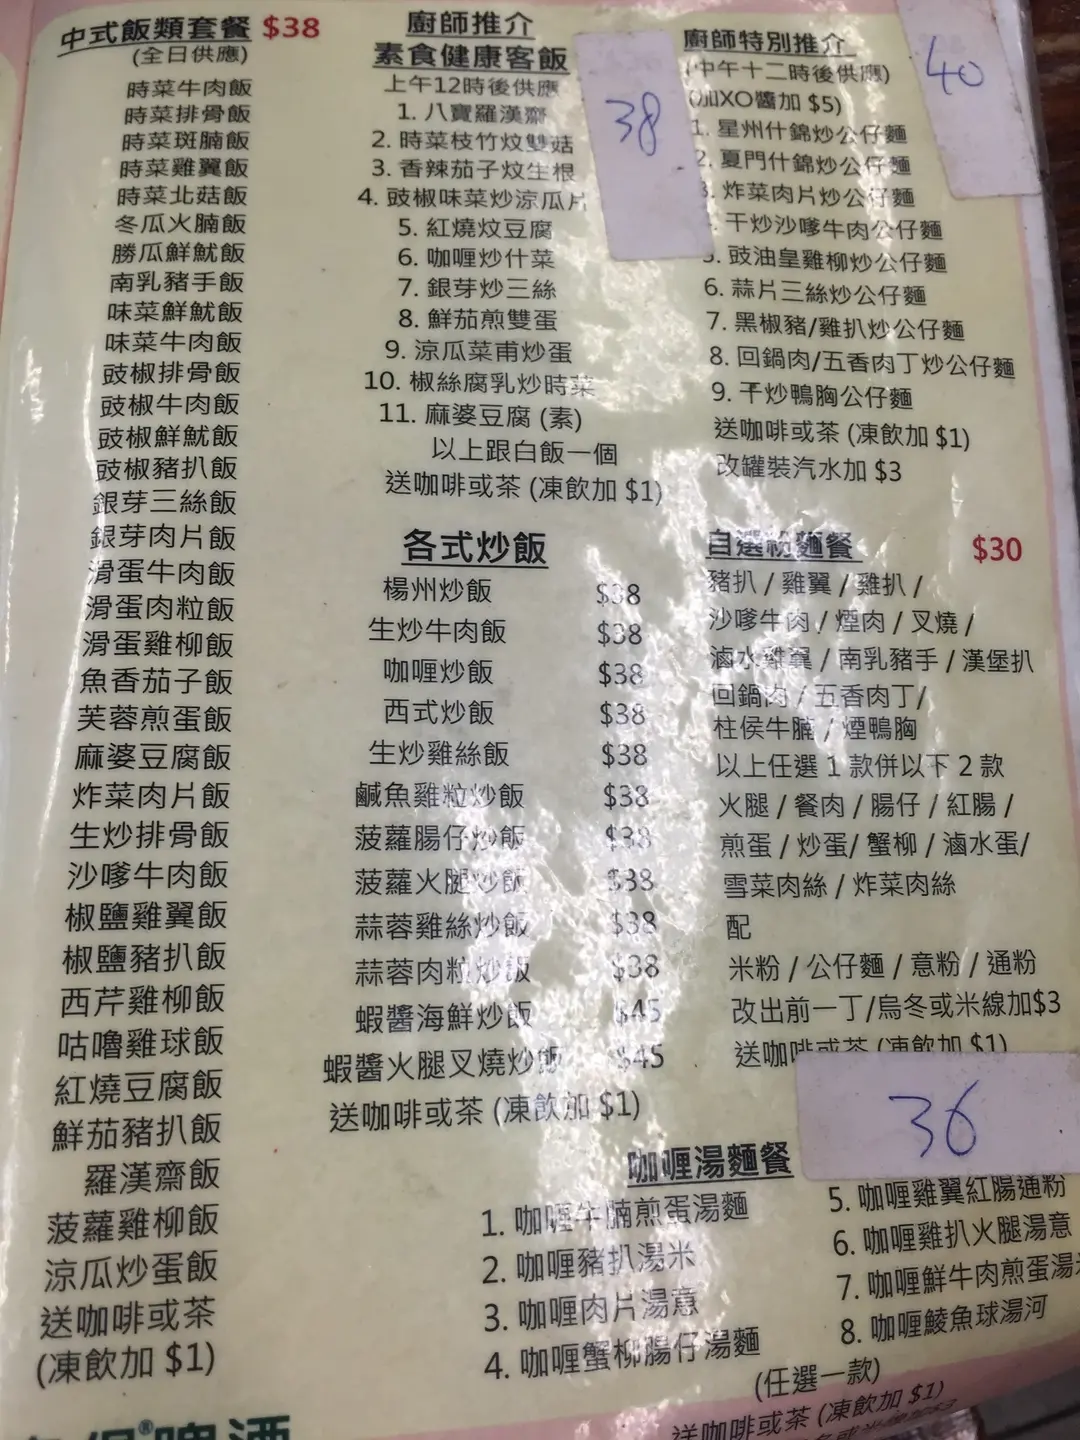 中式飯類套餐 $38
(全日供應)
時菜牛肉飯
時菜排骨飯
時菜斑腩飯
時菜雞翼飯
時菜北菇飯
冬瓜火腩飯
勝瓜鮮魷飯
南乳豬手飯
味菜鮮魷飯
味菜牛肉飯
豉椒排骨飯
豉椒牛肉飯
豉椒鮮魷飯
豉椒豬扒飯
銀芽三絲飯
銀芽肉片飯
滑蛋牛肉飯
滑蛋肉粒飯
滑蛋雞柳飯
魚香茄子飯
芙蓉煎蛋飯
麻婆豆腐飯
炸菜肉片飯
生炒排骨飯
沙嗲牛肉飯
椒鹽雞翼飯
椒鹽豬扒飯
西芹雞柳飯
咕嚕雞球飯
紅燒豆腐飯
鮮茄豬扒飯
羅漢齋飯
菠蘿雞柳飯
涼瓜炒蛋飯
送咖啡或茶
(凍飲加 $1)
廚師推介
素食健康客飯
上午12時後供應
1. 八寶羅漢齋
2. 時菜枝竹炆雙菇
3. 香辣茄子炆生根
4. 豉椒味菜炒涼瓜片
5. 紅燒炆豆腐
6. 咖喱炒什菜
7. 銀芽炒三絲
8. 鮮茄煎雙蛋
9. 涼瓜菜甫炒蛋
10. 椒絲腐乳炒時菜
11. 麻婆豆腐 (素)
以上跟白飯一個
送咖啡或茶 (凍飲加 $1)
38
各式炒飯
楊州炒飯 $38
生炒牛肉飯 $38
咖喱炒飯 $38
西式炒飯 $38
生炒雞絲飯 $38
鹹魚雞粒炒飯 $38
菠蘿腸仔炒飯 $38
菠蘿火腿炒飯 $38
蒜蓉雞絲炒飯 $38
蒜蓉肉粒炒飯 $38
蝦醬海鮮炒飯 $45
蝦醬火腿叉燒炒飯 $45
送咖啡或茶 (凍飲加 $1)
廚師特別推介
40
(中午十二時後供應)
(加XO醬加 $5)
1. 星州什錦炒公仔麵
2. 夏門什錦炒公仔麵
3. 炸菜肉片炒公仔麵
干炒沙嗲牛肉公仔麵
5. 豉油皇雞柳炒公仔麵
6. 蒜片三絲炒公仔麵
7. 黑椒豬/雞扒炒公仔麵
8. 回鍋肉/五香肉丁炒公仔麵
9. 干炒鴨胸公仔麵
送咖啡或茶 (凍飲加 $1)
改罐裝汽水加 $3
自選粉麵餐 $30
豬扒 / 雞翼 / 雞扒 /
沙嗲牛肉 / 煙肉 / 叉燒 /
滷水雞翼 / 南乳豬手 / 漢堡扒
回鍋肉 / 五香肉丁 /
柱侯牛腩 / 煙鴨胸
以上任選 1 款併以下 2 款
火腿 / 餐肉 / 腸仔 / 紅腸 /
煎蛋 / 炒蛋/ 蟹柳 / 滷水蛋/
雪菜肉絲 / 炸菜肉絲
配
米粉 / 公仔麵 / 意粉 / 通粉
改出前一丁/烏冬或米線加$3
送咖啡或茶 (凍飲加 $1)
36
咖喱湯麵餐
1. 咖喱牛腩煎蛋湯麵
2. 咖喱豬扒湯米
3. 咖喱肉片湯意
4. 咖喱蟹柳腸仔湯麵
5. 咖喱雞翼紅腸通粉
6. 咖喱雞扒火腿湯意
7. 咖喱鮮牛肉煎蛋湯
8. 咖喱鯪魚球湯河
(任選一款)
送咖啡或茶 (凍飲加 $1)
啤酒